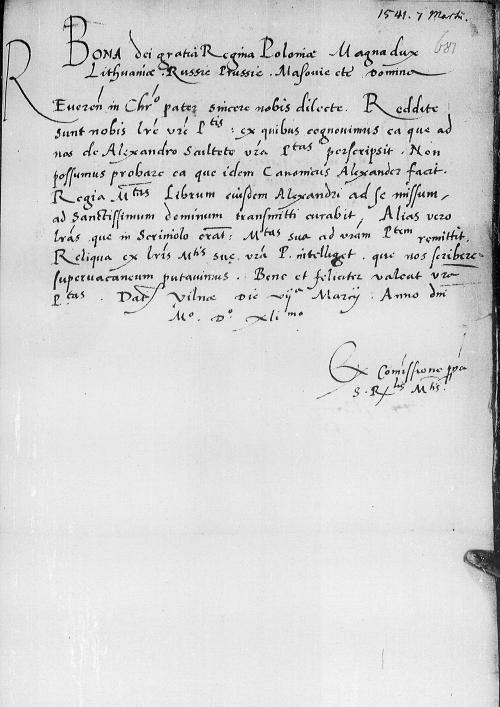 1541. 7 Martii.
681
BONA dei gratia Regina Poloniæ Magna dux
Lithuaniæ. Russie Prussie. Masovie etc Domina
Reveren̄ in Chr̄o pater sincere nobis dilecte. Reddite
sunt nobis lrē vrē Ptis: ex quibus cognovimus ea que ad
nos de Alexandro Sculteto vrā Ptas perscripsit. Non
possumus probare ea que idem Canonicus Alexander facit.
Regia Mtas Librum eiusdem Alexandri ad se missum,
ad Sanctissimum dominum transmitti curabit. Alias vero
lrās que in Scriniolo erāt: Mtas sua ad vrām Ptem remittit.
Reliqua ex lrīs Mtis sue, vrā P. intelliget. que nos scribere
supervacaneum putavimus. Bene et feliciter valeat vrā
Ptas. Dat Vilnæ Die vija Marcij. Anno dnī
Mo. Do. xli mo
Ex Comissione ppīa
S. R. Mtis